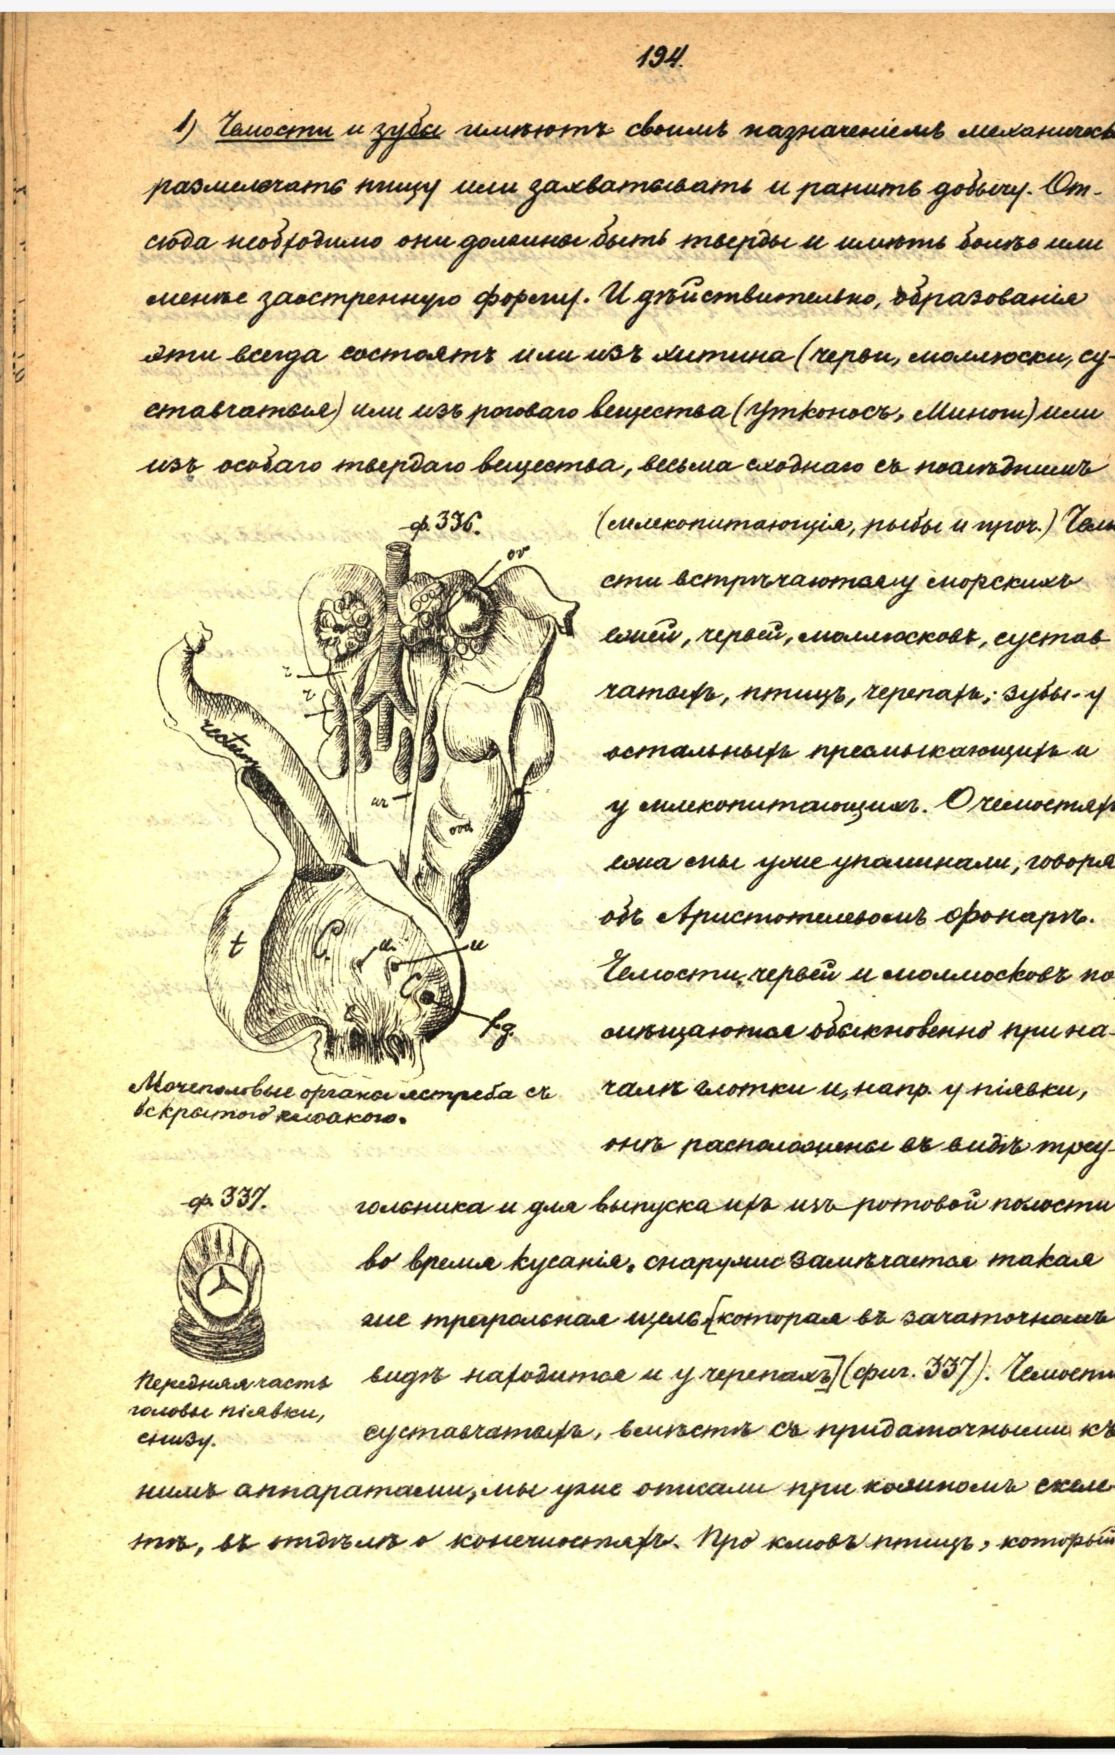 194.
1) Челюсти и зубы имѣютъ своимъ назначеніемъ механическ
размельчать пищу или захватывать и ранить добычу. От-
сюда необходимо они должны быть тверды и имѣть болѣе или
менѣе заостренную форму. И дѣйствительно, образованія
эти всегда состоятъ или изъ хитина (черви, моллюски, су-
ставчатыя) или изъ роговаго вещества (Утконосъ, Миноги) или
изъ особаго твердаго вещества, весьма сходнаго съ послѣднимъ
ф. 336.
(млекопитающія, рыбы и проч.) Челю
сти встрѣчаются у морскихъ
ежей, червей, моллюсковъ, сустав
чатыхъ, птицъ, черепахъ; зубы - у
остальныхъ пресмыкающихъ и
у млекопитающихъ. О челюстях
ежа мы уже упоминали, говоря
объ Аристотелевомъ фонарѣ.
Челюсти червей и моллюсковъ по
мѣщаются обыкновенно при на-
чалѣ глотки и, напр. у піявки,
онѣ расположены въ видѣ треу-
ov
r
r
rectum
ur
ovd
t
C.
u.
u
C
f.g.
Мочеполовые органы ястреба съ
вскрытою клоакою.
ф. 337.
Передняя часть
головы піявки,
снизу.
гольника и для выпуска ихъ изъ ротовой полости
во время кусанія, снаружи замѣчается такая
же треугольная щель [которая въ зачаточномъ
видѣ находится и у черепахъ] (фиг. 337). Челюсти
суставчатыхъ, вмѣстѣ съ придаточными къ
нимъ аппаратами, мы уже описали при кожномъ скеле-
тѣ, въ отдѣлѣ о конечностяхъ. Про клювъ птицъ, который